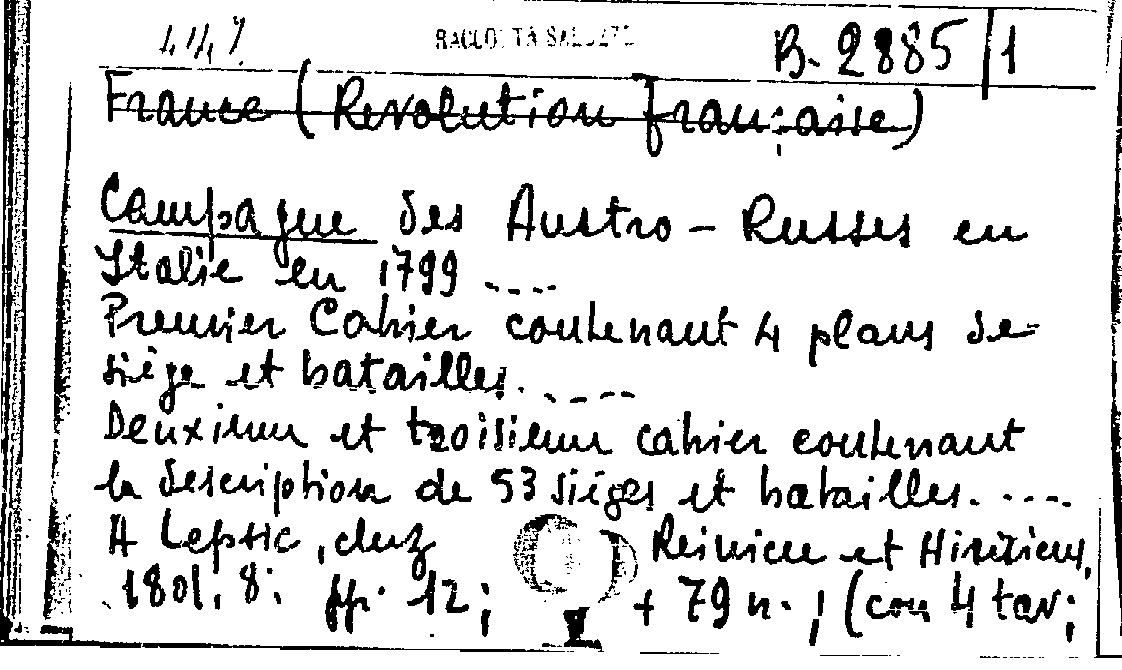 447. RACCOLTA SALUZZO B. 2885 | 1
France (Revolution française)
Campague des Austro-Russes en
Italie en 1799 ....
Premier Cahier contenant 4 plans de
siège et batailles. ....
Deuxieme et troisieme cahier contenant
la description de 53 sièges et batailles. ....
A Lepsic, chez Reinicke et Hinrichs,
1801. 8: ff. 12; + 79 n. ; (con 4 tav;